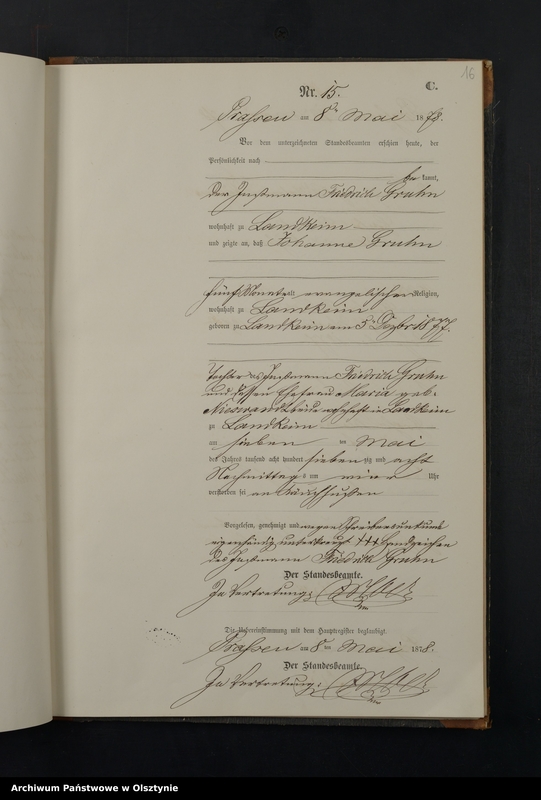 16
C.
Nr. 15.
Prassen am 8ten Mai 1878.
Vor dem unterzeichneten Standesbeamten erschien heute, der
Persönlichkeit nach
kannt,
der Instmann Friedrich Gruhn
wohnhaft zu Landkeim
und zeigte an, daß Johanne Gruhn
fünf Monate alt, evangelischer Religion,
wohnhaft zu Landkeim
geboren zu Landkeim am 5. Dezbr 1877.
Tochter des Instmann Friedrich Gruhn
und dessen Ehefrau Maria geb.
beide wohnhaft in Landkeim
zu Landkeim
am sieben ten Mai
des Jahres tausend acht hundert siebenzig und acht
Nachmittags um vier Uhr
verstorben sei an
Vorgelesen, genehmigt und wegen Schreibensunkunde
eigenhändig unterkreuzt +++ Handzeichen
des Instmann Friedrich Gruhn
Der Standesbeamte.
In Vertretung:
Die Uebereinstimmung mit dem Hauptregister beglaubigt
Prassen am 8ten Mai 1878.
Der Standesbeamte.
In Vertretung:
Archiwum Państwowe w Olsztynie